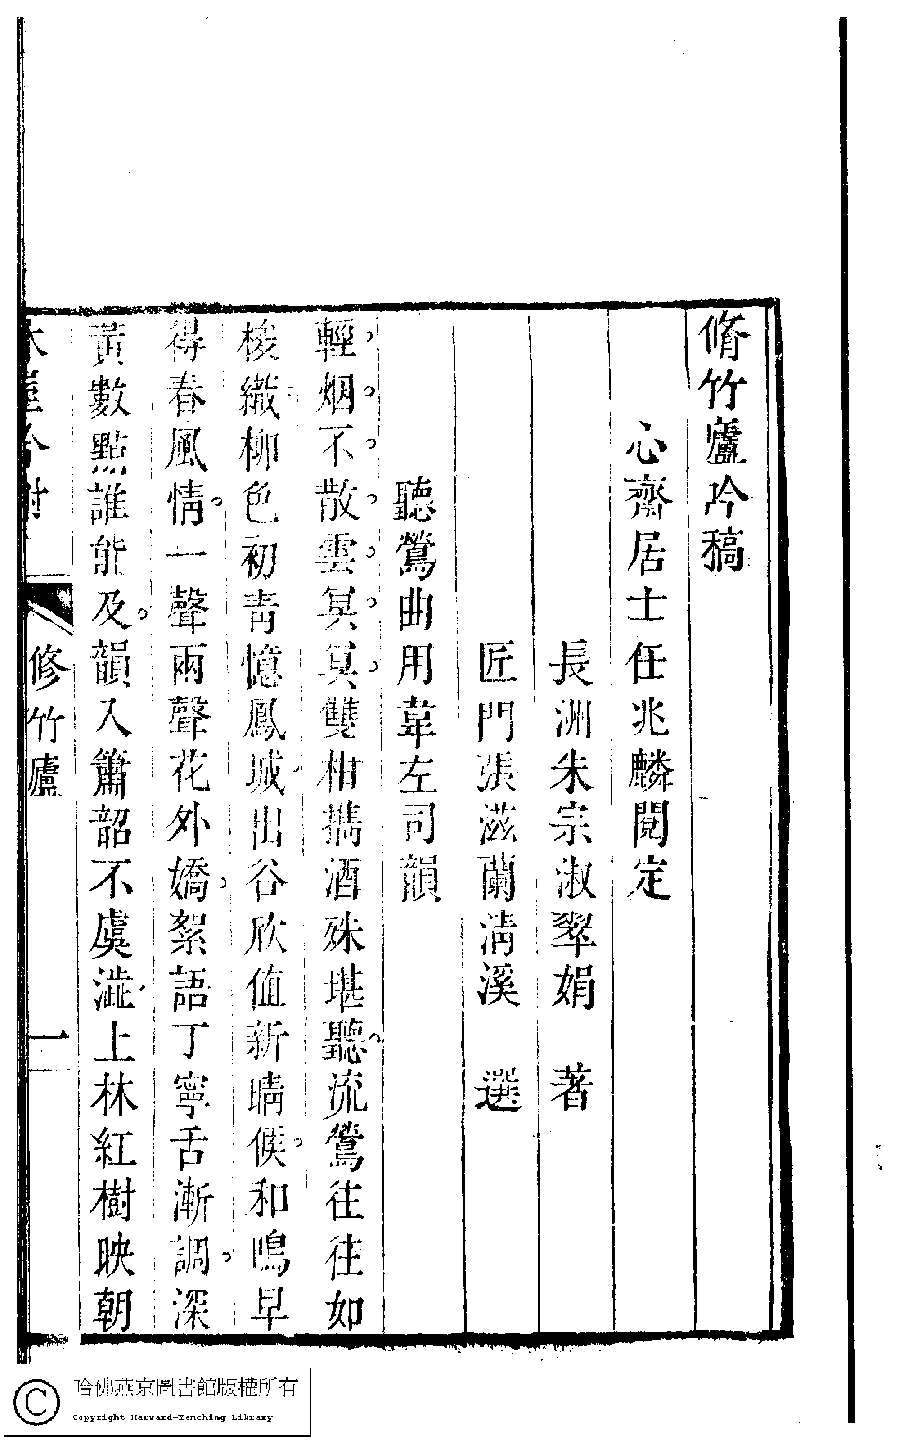 脩竹廬吟稿
心齋居士任兆麟閱定
長洲朱宗淑翠娟　著
匠門張滋蘭淸溪　選
聽鶯曲用韋左司韻
輕烟不散雲冥冥雙柑攜酒殊堪聽流鶯往往如
梭織柳色初靑憶鳳城出谷欣值新晴候和鳴早
得春風情一聲兩聲花外嬌絮語丁寧舌漸調深
黃數點誰能及韻入簫韶不虞澁上林紅樹映朝
修竹廬
一
哈佛燕京圖書館版權所有
Copyright Harvard-Yenching Library